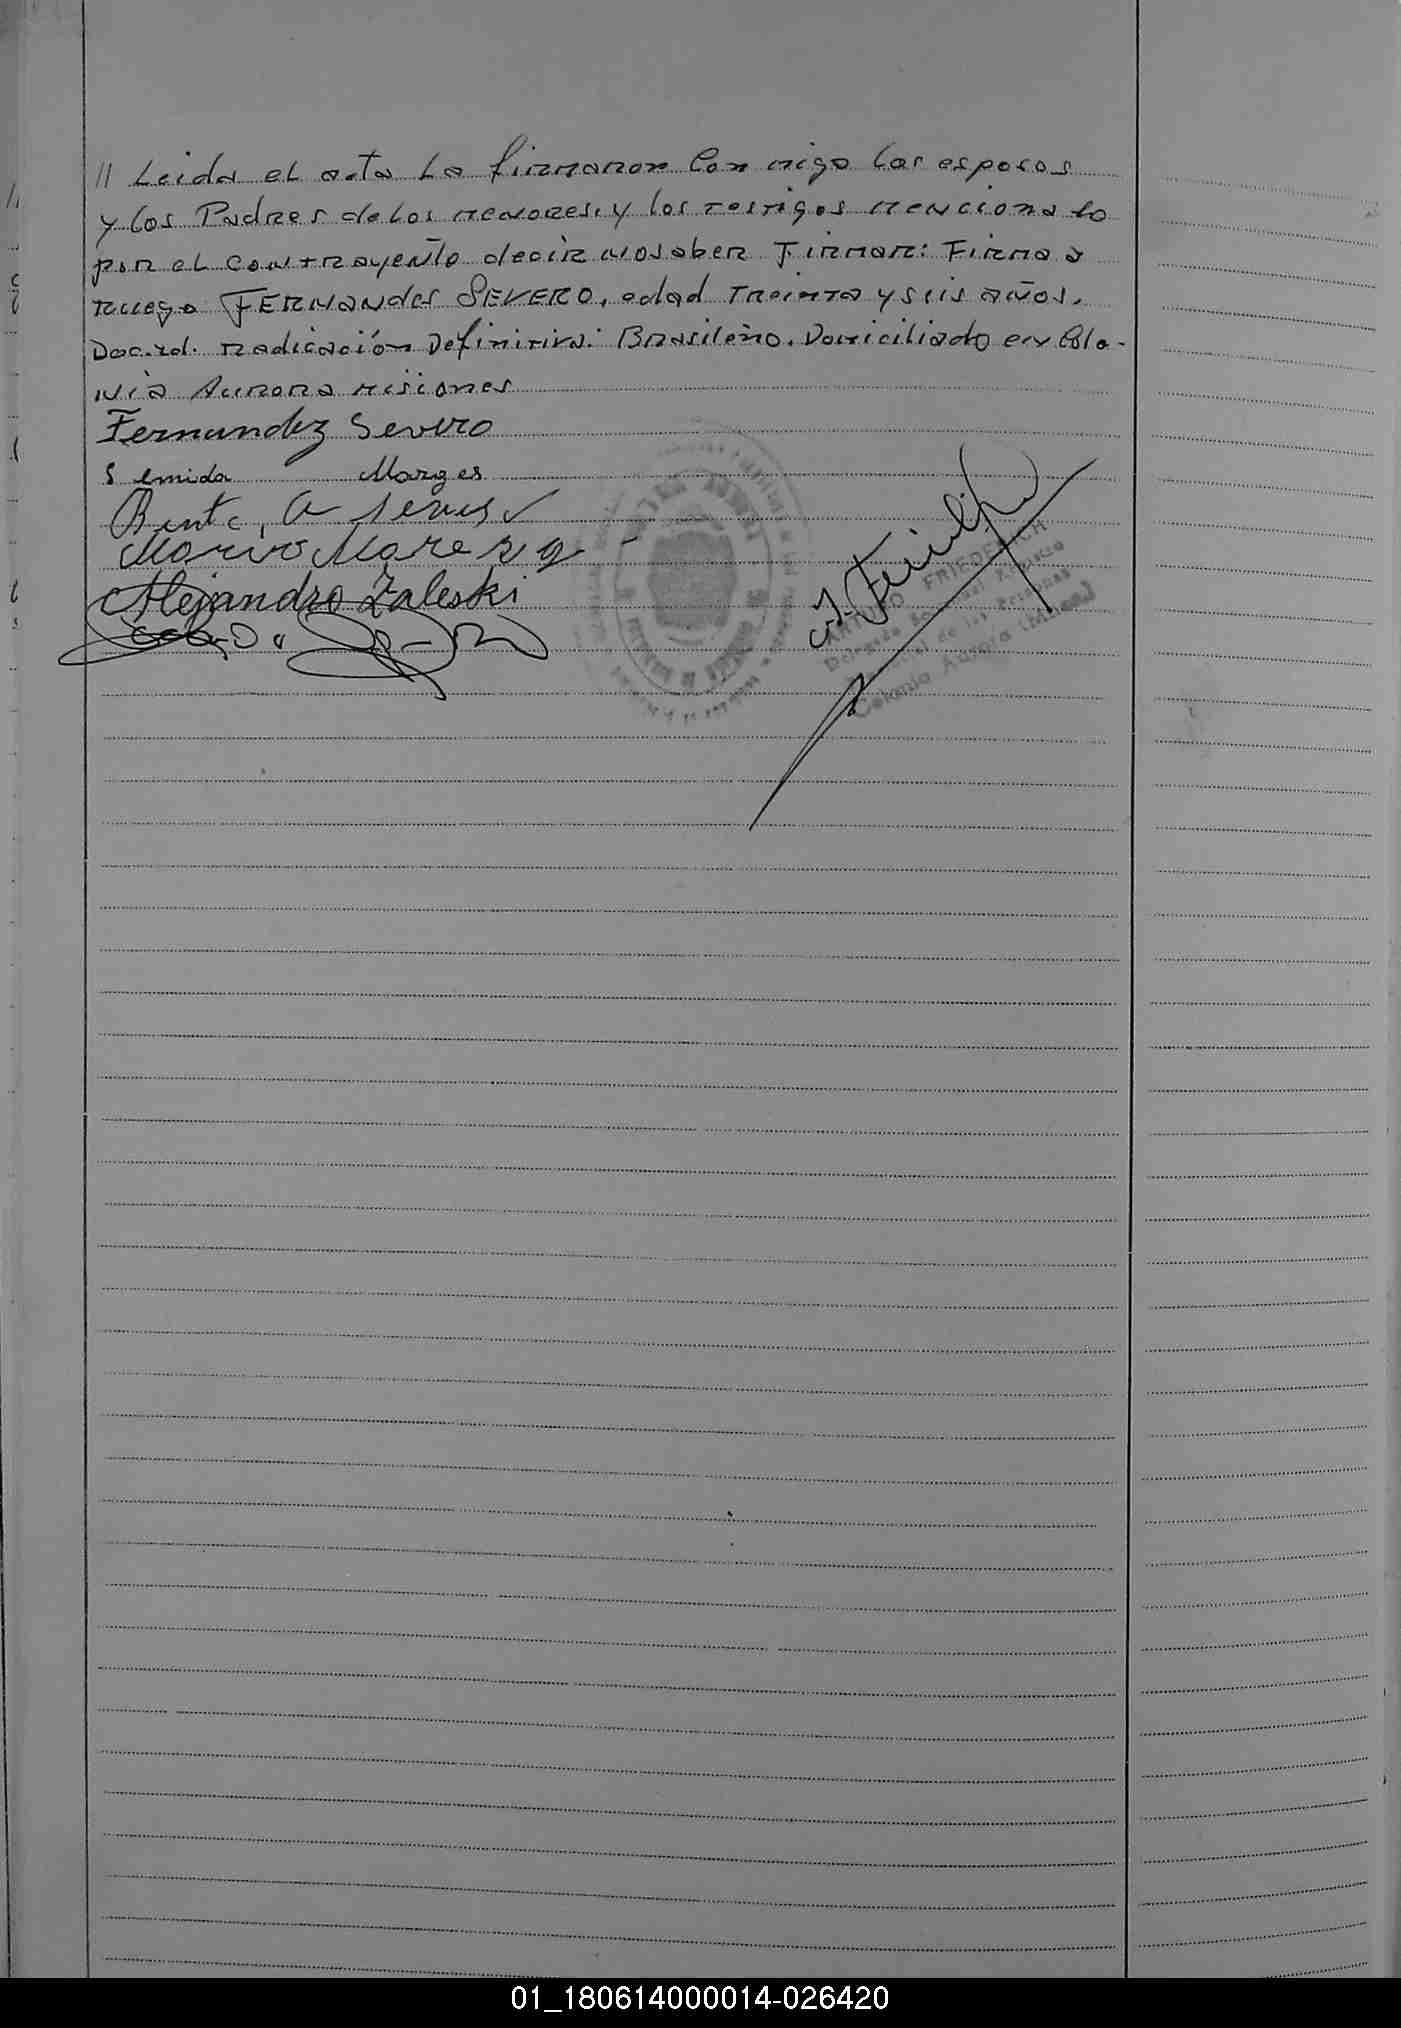 // Leida el acta la firmaron Con migo los esposos
y los Padres de los menores. y los testigos menciona lo
por el contrayente decir no saber Firmar: Firma a
ruego FERNANDES SEVERO, edad Treinta y seis años,
Doc. rd. radicación Definitiva: Brasileño. Domiciliado en Colo-
nia Aurora Misiones
Fernandez Severo
Semida Marques
Mario
Alejandro Zaleski
ARTURO FRIEDRICH
Delegado
de las Personas
Colonia Aurora (Misiones)
01_180614000014-026420